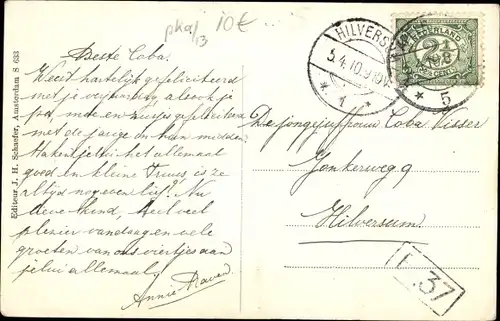 pka/13 10€
Beste Coba.
Weest hartelijk gefeliciteerd
met je verjaardag alsook je
pa, moe en zusjes gefeliciteerd
met de jarige en hun midden.
Maken jelui het allemaal
goed en kleine Truus, is ze
altijd nog even lief! Nu
lieve kind, heel veel
plezier vandaag en vele
groeten van ons viertjes aan
jelui allemaal.
Annie
Editeur J. H. Schaefer, Amsterdam S 633
HILVERSUM
5.4.10.9-10V
1
NEDERLAND
2½
CENT
5
De jongejuffrouw Coba Visser
Jonkerweg 9
Hilversum.
37